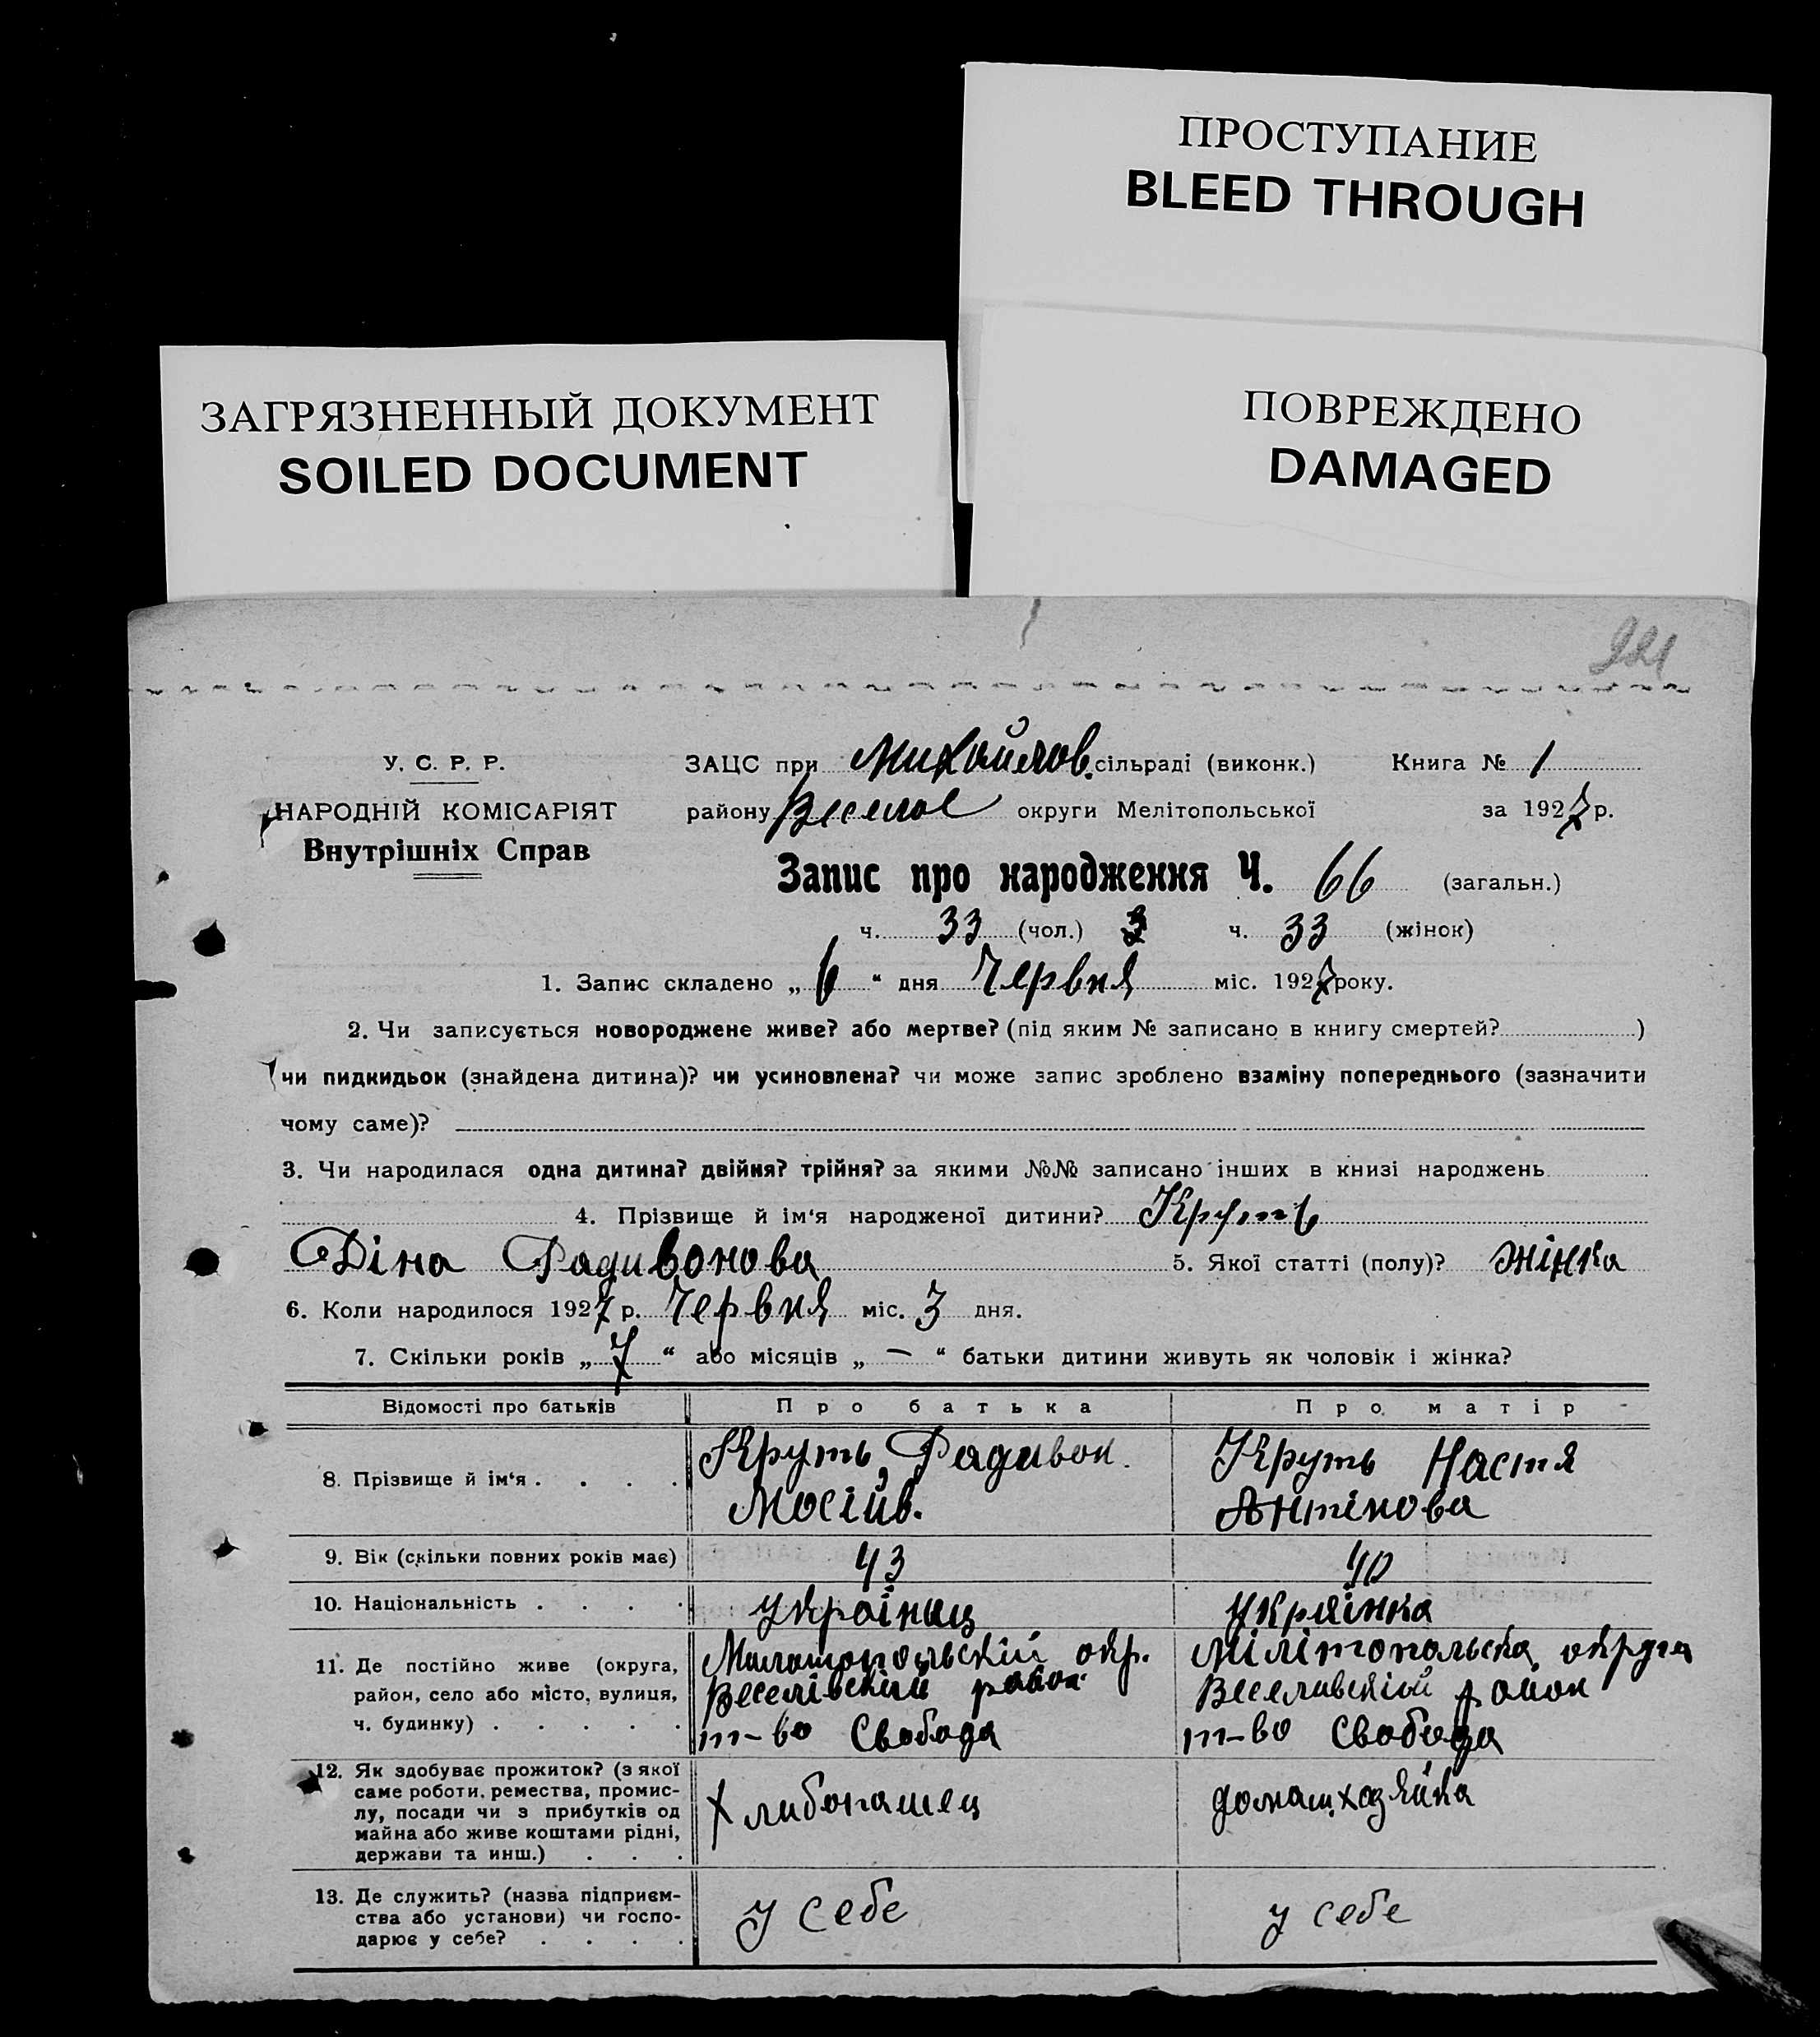 ПРОСТУПАНИЕ
BLEED THROUGH
ЗАГРЯЗНЕННЫЙ ДОКУМЕНТ
SOILED DOCUMENT
ПОВРЕЖДЕНО
DAMAGED
У. С. Р. Р.
НАРОДНІЙ КОМІСАРІЯТ
Внутрішніх Справ
ЗАЦС при Михайлов. сільраді (виконк.) Книга № 1
району Весел округи Мелітопольської за 1927 р.
Запис про народження Ч. 66 (загальн.)
ч. 33 (чол.) 3 ч. 33 (жінок)
1. Запис складено „ 6 “ дня Червня міс. 1927 року.
2. Чи записується новороджене живе? або мертве? (під яким № записано в книгу смертей? )
чи пидкидьок (знайдена дитина)? чи усиновлена? чи може запис зроблено взаміну попереднього (зазначити
чому саме)?
3. Чи народилася одна дитина? двійня? трійня? за якими №№ записано інших в книзі народжень
4. Прізвище й ім‘я народженої дитини? Круть
Діна Радивонова 5. Якої статті (полу)? жінка
6. Коли народилося 1927 р. Червня міс. 3 дня.
7. Скільки років „ 7 “ або місяців „ — “ батьки дитини живуть як чоловік і жінка?
Відомості про батьків Про батька Про матір
8. Прізвище й ім‘я . . . . Круть Радивон. Круть Настя
Мосійв. Антінова
9. Вік (скільки повних років має) 43 40
10. Національність . . . . Українец Українка
11. Де постійно живе (округа, Милитопольскій окр. Мілітопольска округа
район, село або місто, вулиця, Веселівский район Веселивскій район
ч. будинку) . . . . . т-во Свобода т-во Свобода
12. Як здобуває прожиток? (з якої
саме роботи, ремества, промис-
лу, посади чи з прибутків од Хлибопашец домаш. хазяйка
майна або живе коштами рідні,
держави та инш.) . . .
13. Де служить? (назва підприєм-
ства або установи) чи госпо- у себе у себе
дарює у себе? . . . .